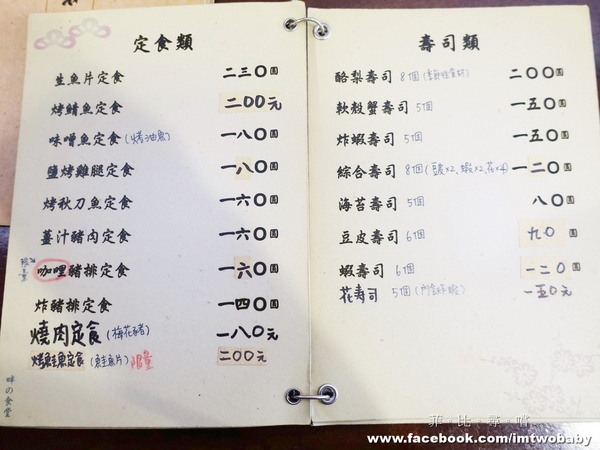 定食類
生魚片定食 二三〇圓
烤鯖魚定食 二〇〇元
味噌魚定食(烤油魚) 一八〇圓
鹽烤雞腿定食 一八〇圓
烤秋刀魚定食 一六〇圓
薑汁豬肉定食 一六〇圓
咖哩豬排定食 一六〇圓
炸豬排定食 一四〇圓
燒肉定食(梅花豬) 一八〇元
烤鮭魚定食(鮭魚片)限量 二〇〇元
畔の食堂
壽司類
酪梨壽司 8個(季節性食材) 二〇〇圓
軟殼蟹壽司 5個 一五〇圓
炸蝦壽司 5個 一五〇圓
綜合壽司 8個(豆皮x2、蝦x2、花x4) 一二〇圓
海苔壽司 5個 八〇圓
豆皮壽司 6個 九〇圓
蝦壽司 6個 一二〇圓
花寿司 5個 一五〇元
菲比尋嚐。
www.facebook.com/imtwobaby